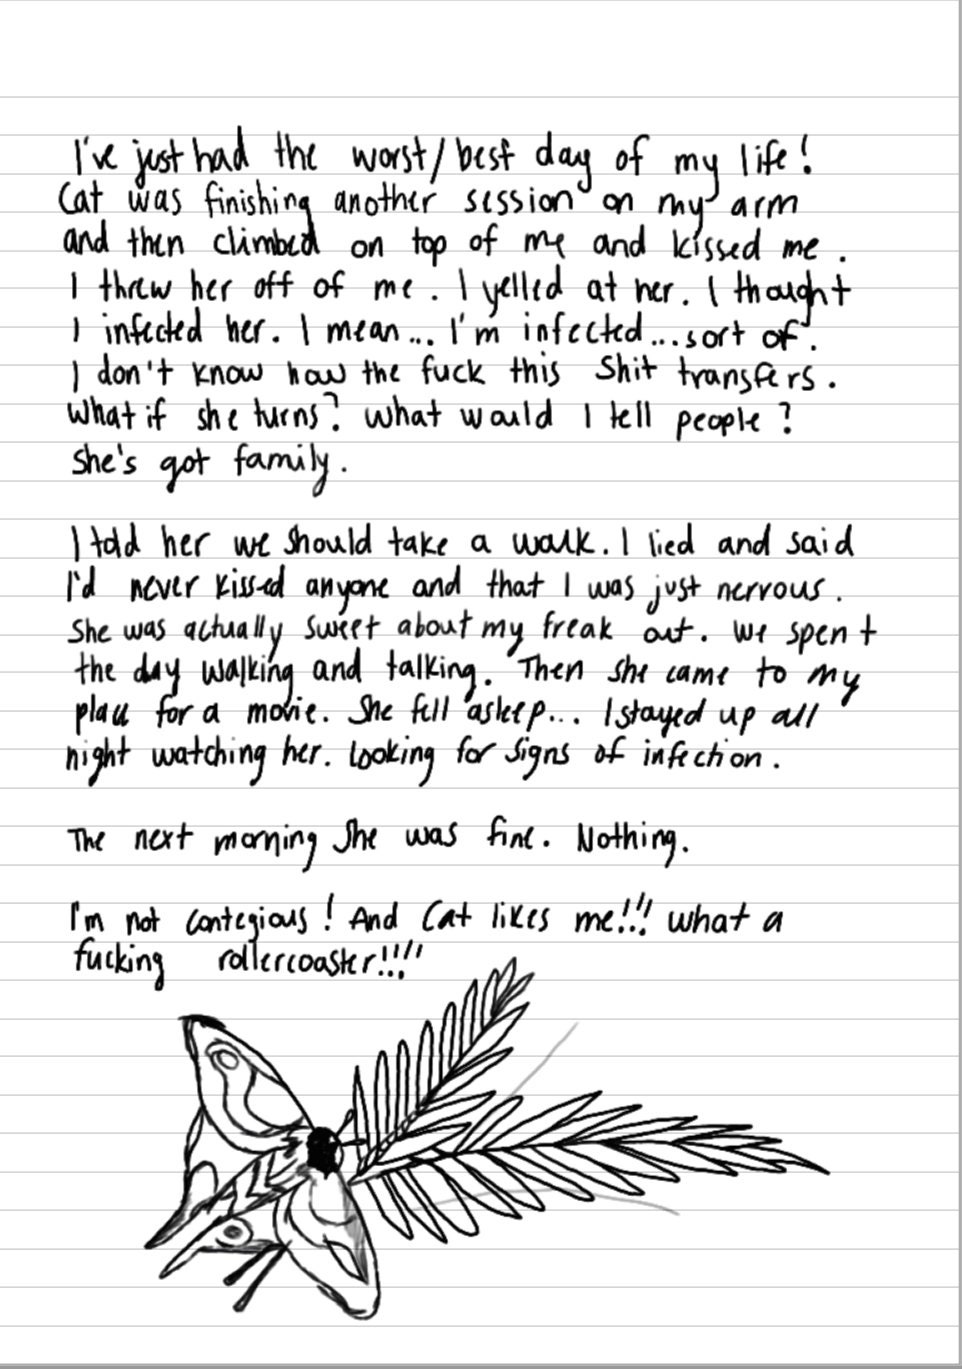 I've just had the worst/best day of my life!
Cat was finishing another session on my arm
and then climbed on top of me and kissed me.
I threw her off of me. I yelled at her. I thought
I infected her. I mean... I'm infected...sort of.
I don't know how the fuck this shit transfers.
What if she turns? What would I tell people?
She's got family.
I told her we should take a walk. I lied and said
I'd never kissed anyone and that I was just nervous.
She was actually sweet about my freak out. We spent
the day walking and talking. Then she came to my
place for a movie. She fell asleep... I stayed up all
night watching her. Looking for signs of infection.
The next morning she was fine. Nothing.
I'm not contegious! And Cat likes me!!! what a
fucking rollercoaster!!!!